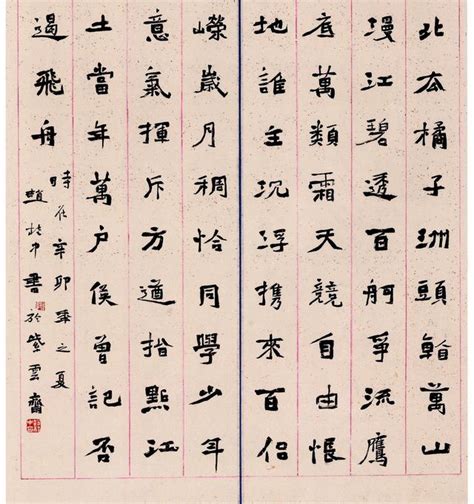 北去橘子洲頭看萬山
漫江碧透百舸爭流鷹
底萬類霜天競自由悵
地誰主沉浮携來百侣
嶸歲月稠恰同學少年
意氣揮斥方遒指點江
土當年萬户侯曾記否
遏飛舟
時在辛卯年之夏
趙中書於紫雲齋